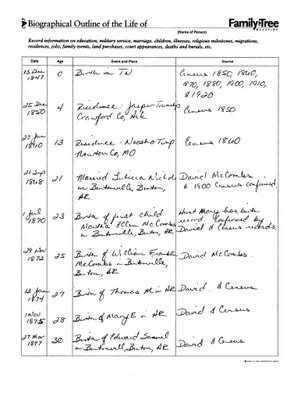 Biographical Outline of the Life of
FamilyTree
MAGAZINE
(Name of Person)
Record information on education, military service, marriage, children, illnesses, religious milestones, migrations,
residences, jobs, family events, land purchases, court appearances, deaths and burials, etc.
Date Age Event and Place Source
13 Dec 1847 0 Birth in TN Census 1850, 1860,
1870, 1880, 1900, 1910,
& 1920
25 Dec 1850 4 Residence - Jasper Township Census 1850
Crawford Co, Ark
27 Jun 1860 13 Residence - Neosho Twp Census 1860
Newton Co, MO
21 Sep 1868 21 Married Luticia Nichols David McCombs
in Bentonville, Benton, & 1900 Census confirmed
AR
1 Jul 1870 23 Birth of first child
Martha Ellen McCombs record. Confirmed by
in Bentonville, Benton, AR David & Census records.
29 Nov 1872 25 Birth of William Frank David McCombs
McCombs in Bentonville,
Benton, AR
1874 27 Birth of Thomas M in AR David & Census
1 Nov 1875 28 Birth of Mary E in AR David & Census
27 Mar 1877 30 Birth of Edward Samuel
in Bentonville, Benton, AR David & Census